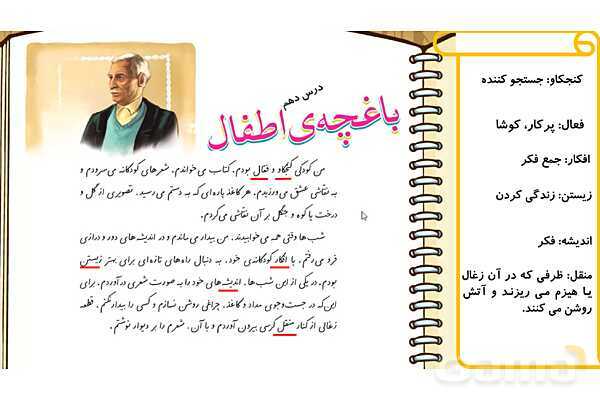 درس دهم
باغچه‌ی اطفال
من کودکی کنجکاو و فعال بودم. کتاب می‌خواندم. شعرهای کودکانه می‌سرودم و
به نقاشی عشق می‌ورزیدم. هر کاغذ پاره‌ای که به دستم می‌رسید، تصویری از گل و
درخت یا کوه و جنگل بر آن نقاشی می‌کردم.
شب‌ها وقتی همه می‌خوابیدند، من بیدار می‌ماندم و در اندیشه‌های دور و درازی
فرو می‌رفتم. با افکار کودکانه‌ی خود، به دنبال راه‌های تازه‌ای برای بهتر زیستن
بودم. در یکی از این شب‌ها، اندیشه‌های خود را به صورت شعری درآوردم. برای
این‌که در جست‌وجوی مداد و کاغذ، چراغی روشن نسازم و کسی را بیدار نکنم، قطعه
زغالی از کنار منقل کرسی بیرون آوردم و با آن، شعرم را بر دیوار نوشتم.
کنجکاو: جستجو کننده
فعال: پر کار، کوشا
افکار: جمع فکر
زیستن: زندگی کردن
اندیشه: فکر
منقل: ظرفی که در آن زغال
یا هیزم می ریزند و آتش
روشن می کنند.
Gama